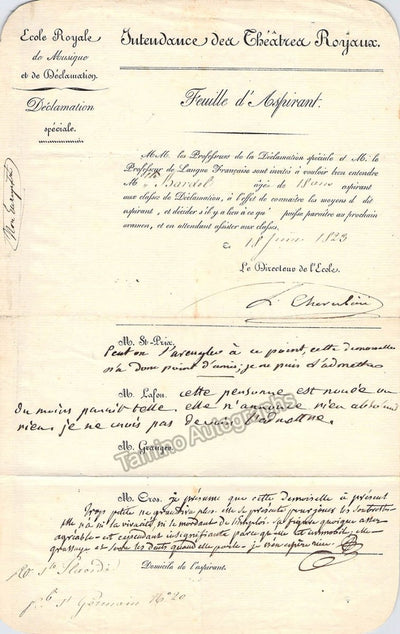 Ecole Royale
de Musique
et de Déclamation.
Déclamation
spéciale.
Intendance des Théâtres Royaux.
Feuille d'Aspirant.
MM. les Professeurs de la Déclamation spéciale et M. le
Professeur de Langue Française sont invités à vouloir bien entendre
M lle Bardel âgée de 18 ans aspirant
aux classes de Déclamation, à l'effet de connaître les moyens d dit
aspirant, et décider s'il y a lieu à ce qu puisse paraître au prochain
examen, et en attendant assister aux classes.
ce 18 juin 1823
Le Directeur de l'Ecole.
L. Cherubini
M. St-Prix,
Peut on s'aveugler à ce point, cette demoiselle
n'a donc point d'amis; je ne puis l'admettre
M. Lafon. cette personne est nouée ou
du moins parait telle. elle n'annonce rien absolument
rien. je ne crois pas devoir l'admettre.
M. Granger.
M. Cros. je présume que cette demoiselle à présent
trop petite ne grandira plus. elle se présente pour jouer les soubrettes
elle n'a ni la vivacité, ni le mordant de l'emploi. sa figure quoique assez
agréable est cependant insignifiante parce qu'elle est immobile, elle
grasseye et serre les dents quand elle parle. je n'en espère rien.
Domicile de l'aspirant.
fb. St Germain No. 20
Tamino Autographs